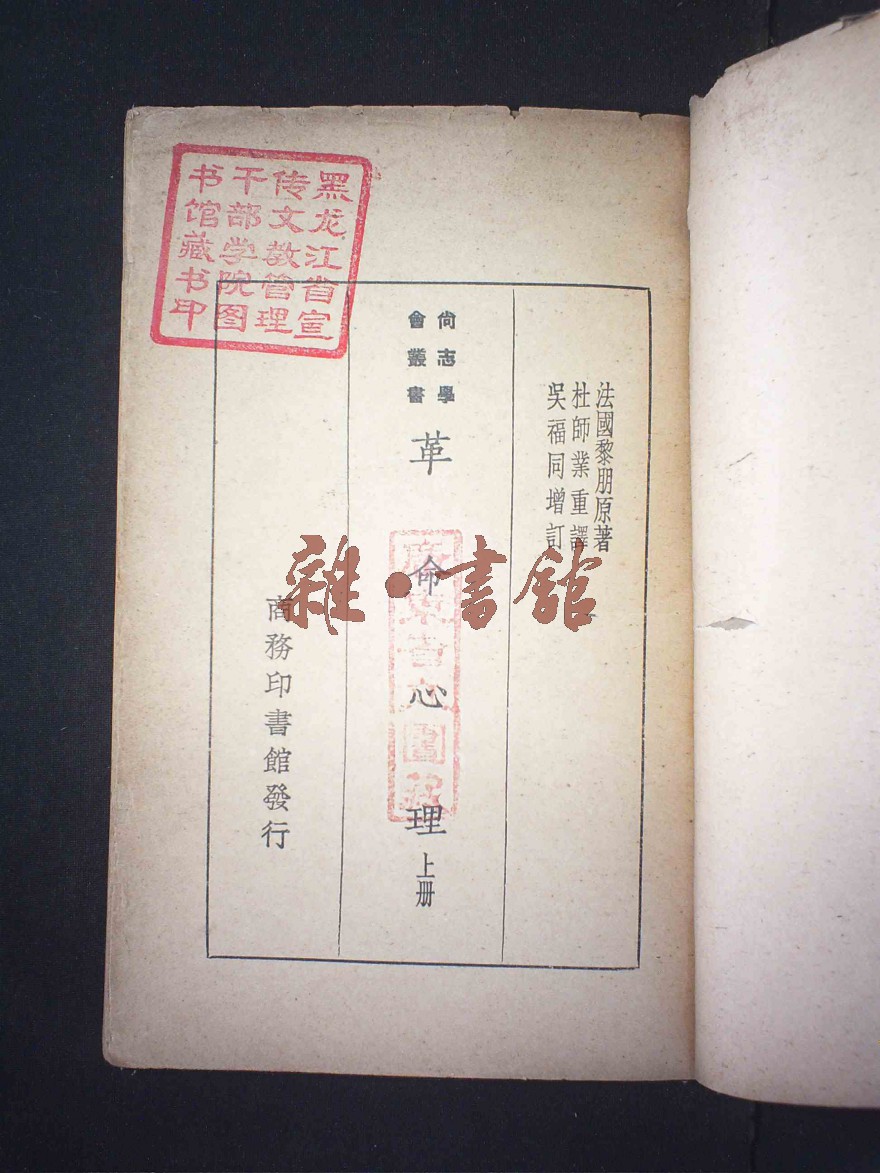 黑龙江省宣
传文教管理
干部学院图
书馆藏书印
法國黎朋原著
杜師業重譯
吳福同增訂
尚志學
會叢書
革命心理上册
商務印書館發行
雜·書館